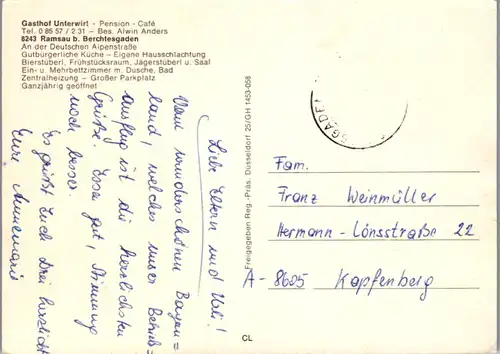 Gasthof Unterwirt - Pension - Café
Tel. 0 85 57 / 2 31 – Bes. Alwin Anders
8243 Ramsau b. Berchtesgaden
An der Deutschen Alpenstraße
Gutbürgerliche Küche – Eigene Hausschlachtung
Bierstüberl, Frühstücksraum, Jägerstüberl u. Saal
Ein- u. Mehrbettzimmer m. Dusche, Bad
Zentralheizung – Großer Parkplatz
Ganzjährig geöffnet
Liebe Eltern und Uli!
Vom wunderschönen Bayern=
land, welches unser Betriebs=
ausflug ist die herzlichsten
Grüße. Esse gut, Stimmung
noch besser.
Es grüßt Euch Drei herzlichst
Eure Annemarie
Freigegeben Reg.-Präs. Düsseldorf 25/GH 1453-058
CL
GADEN
Fam.
Franz Weinmüller
Hermann-Lönsstraße 22
A-8605 Kapfenberg